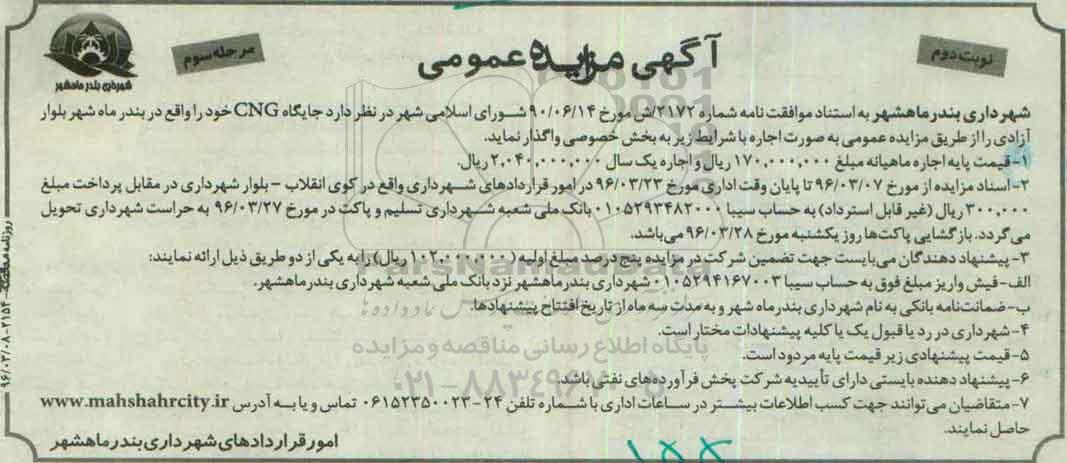 نوبت دوم
آگهی مزایده عمومی
مرحله سوم
شهرداری بندر ماهشهر
شهرداری بندرماهشهر به استناد موافقت نامه شماره ۲۱۷۲/ش مورخ ۹۰/۰۶/۱۴ شورای اسلامی شهر در نظر دارد جایگاه CNG خود را واقع در بندر ماه شهر بلوار
آزادی را از طریق مزایده عمومی به صورت اجاره با شرایط زیر به بخش خصوصی واگذار نماید.
۱-قیمت پایه اجاره ماهیانه مبلغ ۱۷۰,۰۰۰,۰۰۰ ریال و اجاره یک سال ۲,۰۴۰,۰۰۰,۰۰۰ ریال.
۲-اسناد مزایده از مورخ ۹۶/۰۳/۰۷ تا پایان وقت اداری مورخ ۹۶/۰۳/۲۳ در امور قراردادهای شهرداری واقع در کوی انقلاب – بلوار شهرداری در مقابل پرداخت مبلغ
۳۰۰,۰۰۰ ریال (غیر قابل استرداد) به حساب سیبا ۰۱۰۵۲۹۳۴۸۲۰۰۰ بانک ملی شعبه شهرداری تسلیم و پاکت در مورخ ۹۶/۰۳/۲۷ به حراست شهرداری تحویل
می گردد. بازگشایی پاکت‌ها روز یکشنبه مورخ ۹۶/۰۳/۲۸ می‌باشد.
۳-پیشنهاد دهندگان می‌بایست جهت تضمین شرکت در مزایده پنج درصد مبلغ اولیه (۱۰۲,۰۰۰,۰۰۰ ریال) را به یکی از دو طریق ذیل ارائه نمایند:
الف-فیش واریز مبلغ فوق به حساب سیبا ۰۱۰۵۲۹۴۱۶۷۰۰۳ شهرداری بندرماهشهر نزد بانک ملی شعبه شهرداری بندرماهشهر.
ب-ضمانت‌نامه بانکی به نام شهرداری بندرماه شهر و به مدت سه ماه از تاریخ افتتاح پیشنهادها.
۴-شهرداری در رد یا قبول یک یا کلیه پیشنهادات مختار است.
۵-قیمت پیشنهادی زیر قیمت پایه مردود است.
۶-پیشنهاد دهنده بایستی دارای تأییدیه شرکت پخش فرآورده‌های نفتی باشد.
۷-متقاضیان می‌توانند جهت کسب اطلاعات بیشتر در ساعات اداری با شماره تلفن ۲۴-۰۶۱۵۲۳۵۰۰۲۳ تماس و یا به آدرس www.mahshahrcity.ir
حاصل نمایند.
امور قراردادهای شهرداری بندرماهشهر
ParsNamadData
پایگاه اطلاع رسانی مناقصه و مزایده